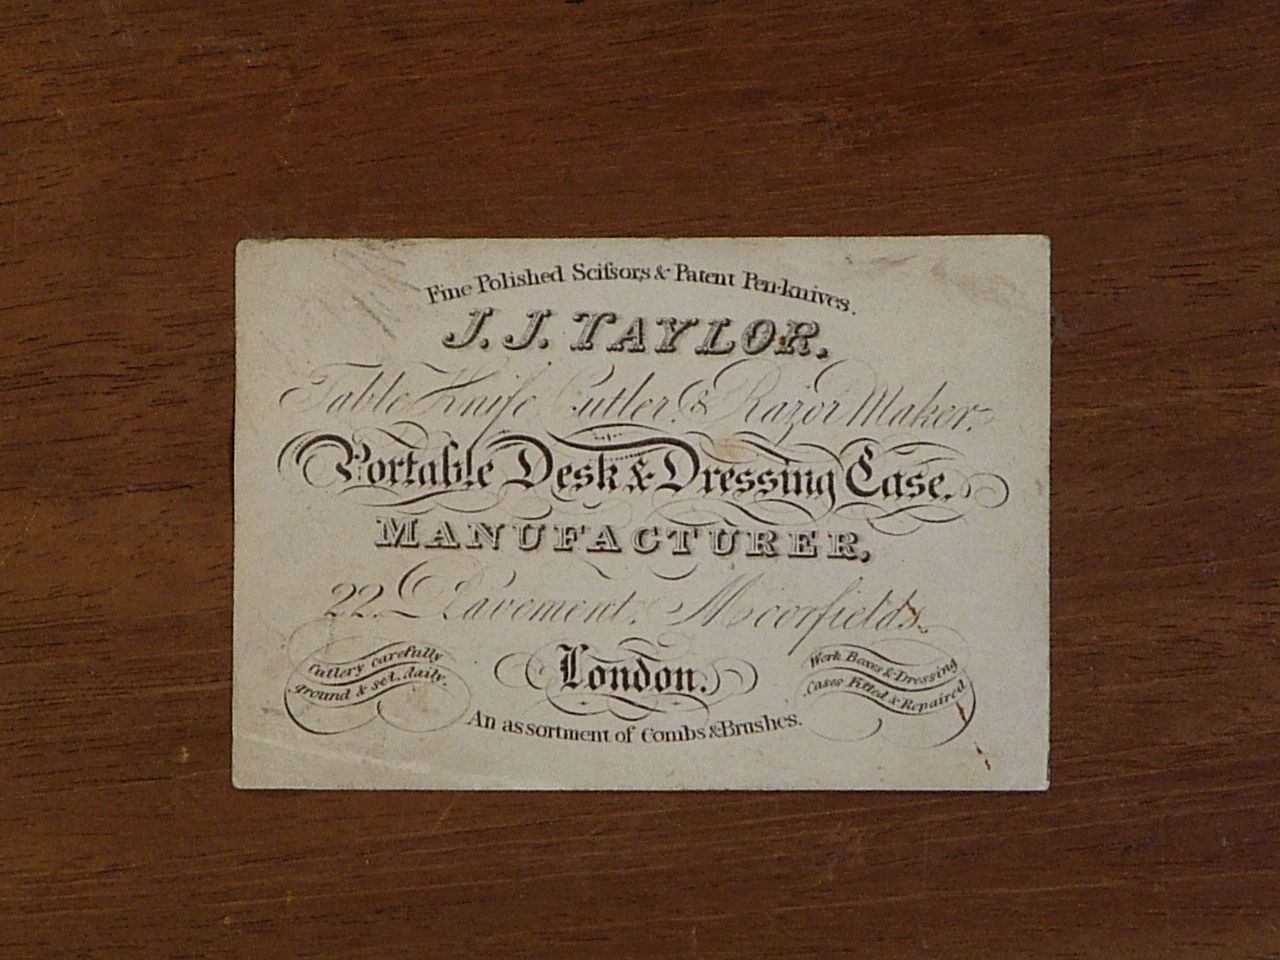 Fine Polished Sciſsors & Patent Pen-knives.
J. J. TAYLOR.
Table Knife Cutler, & Razor Maker.
Portable Desk & Dressing Case.
MANUFACTURER,
22. Pavement, Moorfields.
London.
Cutlery carefully
ground & set, daily.
Work Boxes & Dressing
Cases Fitted & Repaired
An assortment of Combs & Brushes.